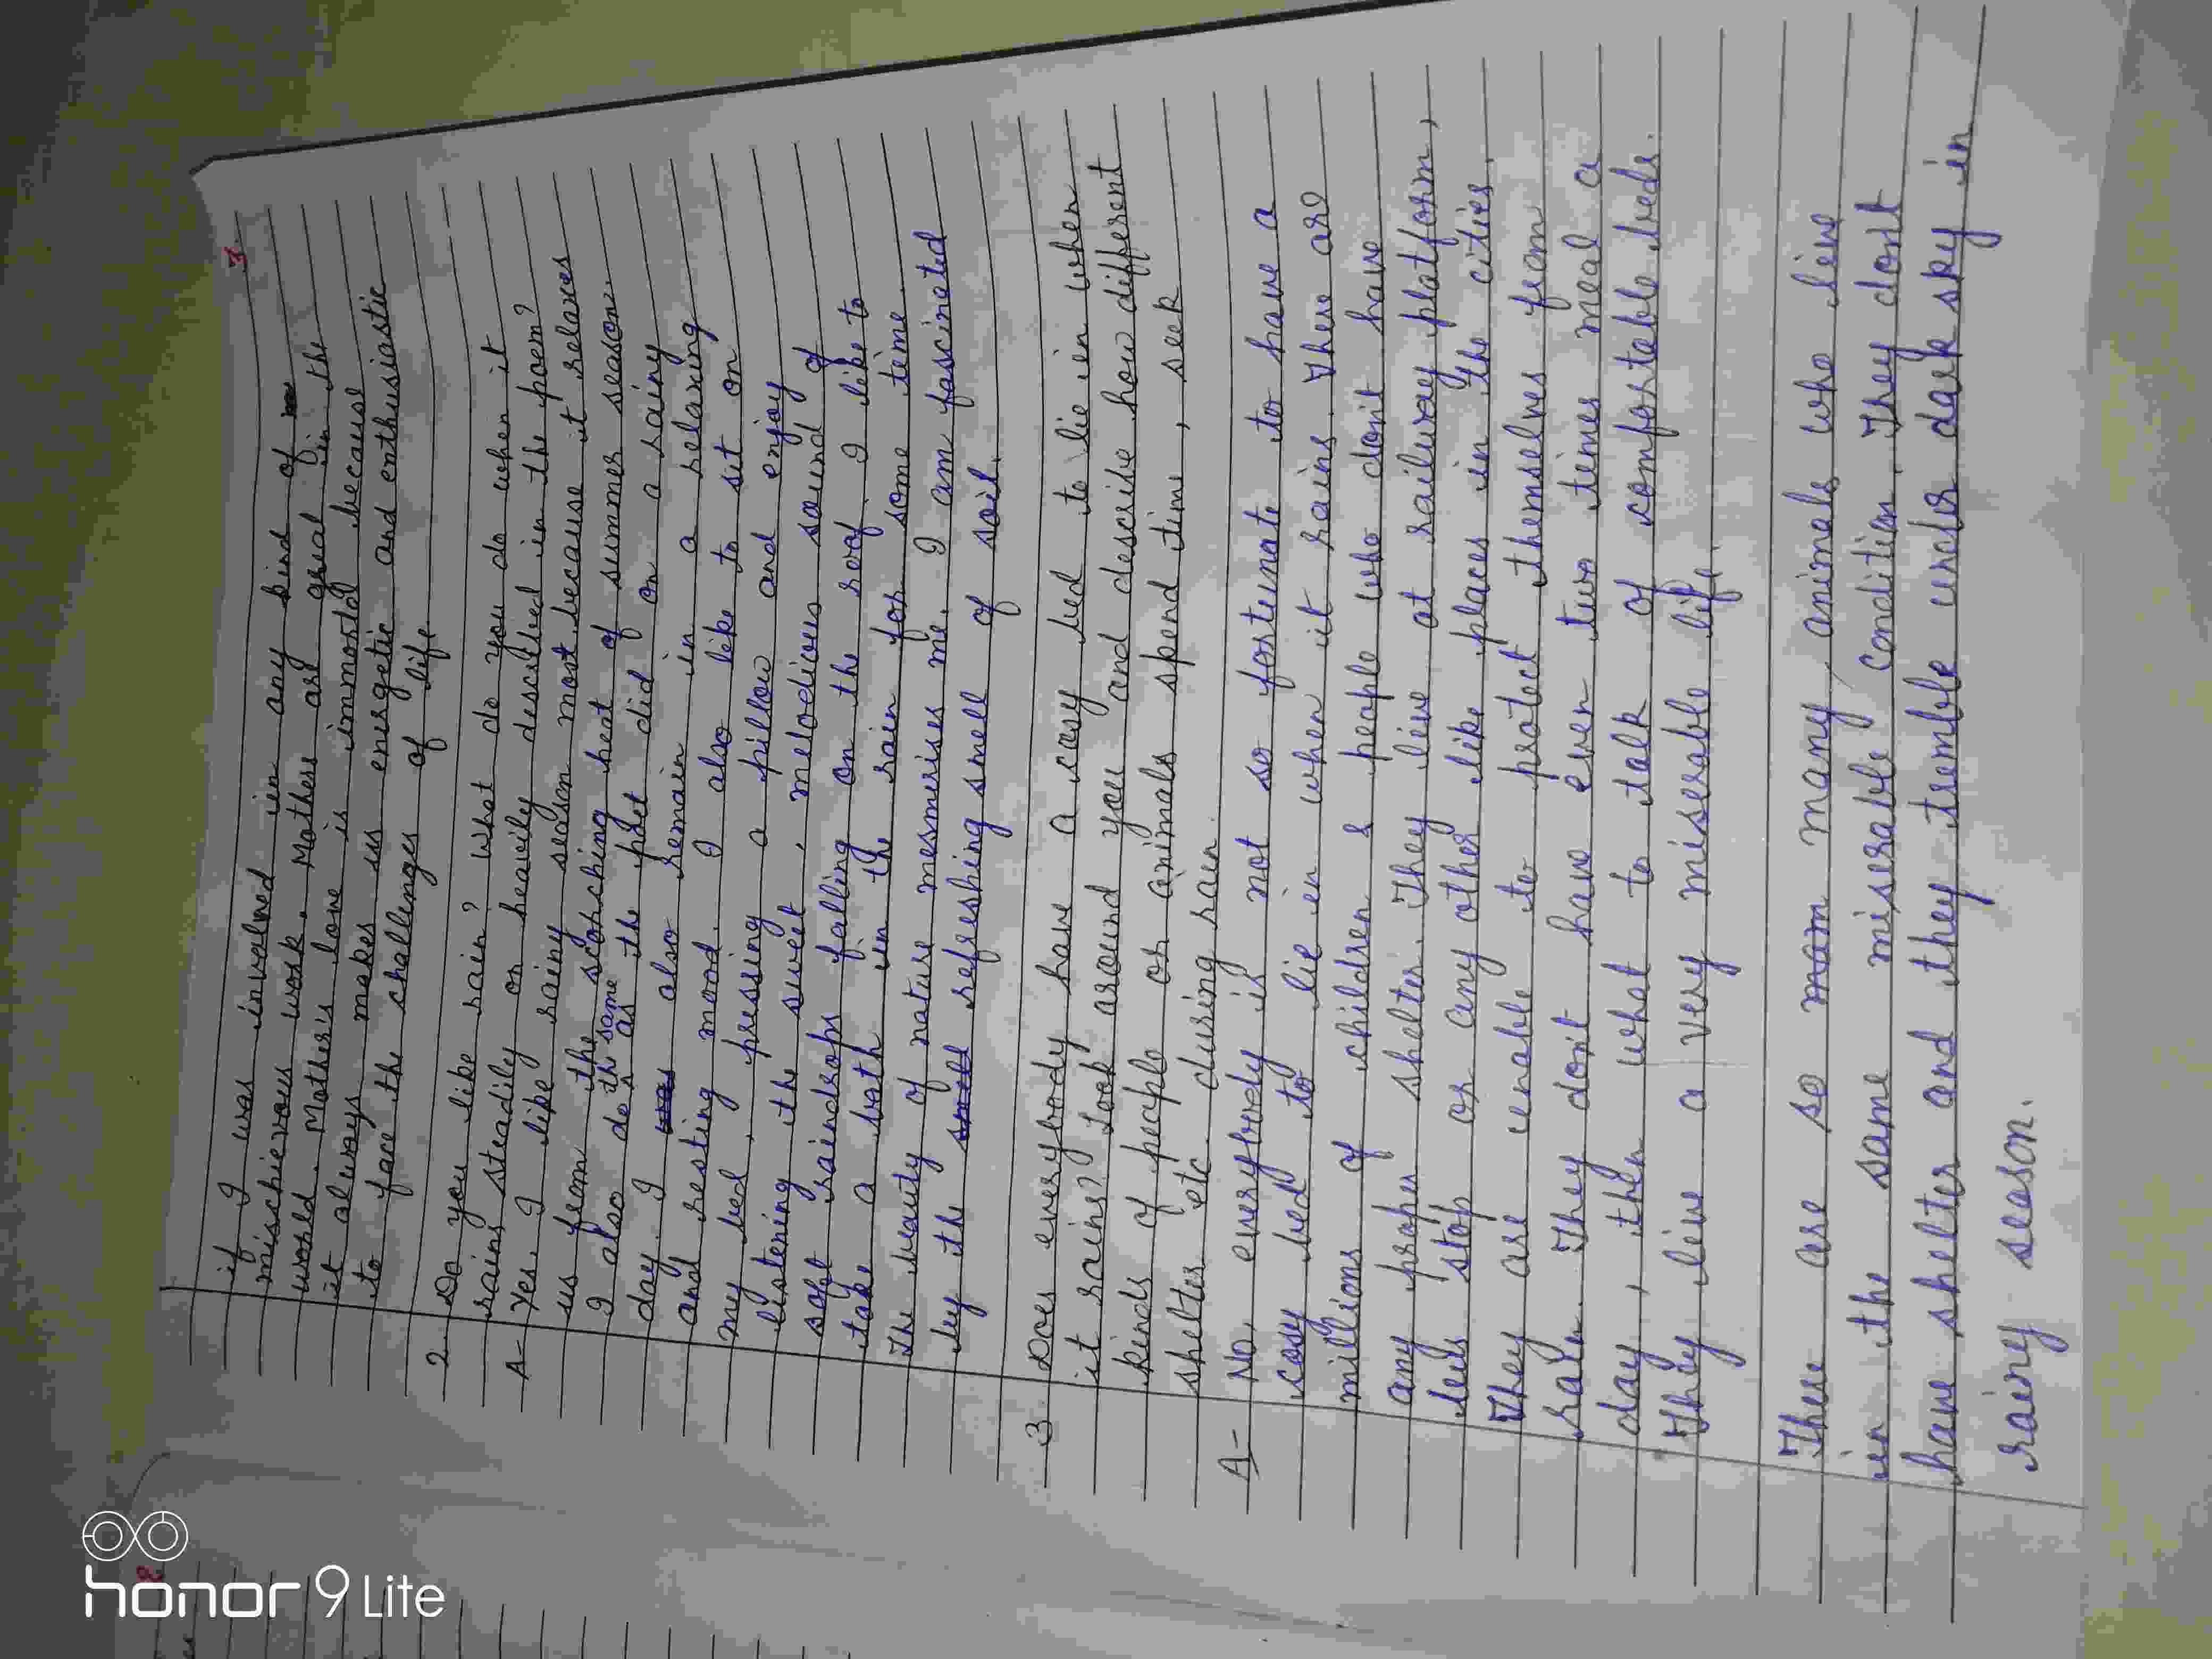 7
if I was involved in any kind of
mischievous work. Mothers are great in the
world. Mother's love is immortal because
it always makes us energetic and enthusiastic
to face the challenges of life
2 Do you like rain? What do you do when it
rains steadily or heavily described in the poem?
A- Yes. I like rainy season most because it relaxes
us from the scorching heat of summer season.
I also do the same as the poet did on a rainy
day. I also remain in a relaxing
and resting mood. I also like to sit on
my bed, pressing a pillow and enjoy
listening the sweet, melodious sound of
soft raindrops falling on the roof. I like to
take a bath in the rain for some time.
The beauty of nature mesmerises me. I am fascinated
by the refreshing smell of soil.
3 Does everybody have a cosy bed to lie in when
it rains? Look around you and describe how different
kinds of people or animals spend time, seek
shelter etc. during rain.
A- No, everybody is not so fortunate to have a
cosy bed to lie in when it rains. There are
millions of children & people who don't have
any proper shelter. They live at railway platform,
bus stop or any other like places in the cities.
They are unable to protect themselves from
rain. They don't have even two times meal a
day, then what to talk of comfortable beds.
They live a very miserable life.
There are so many animals who live
in the same miserable condition. They don't
have shelter and they tremble under dark sky in
rainy season.
8
honor 9 Lite